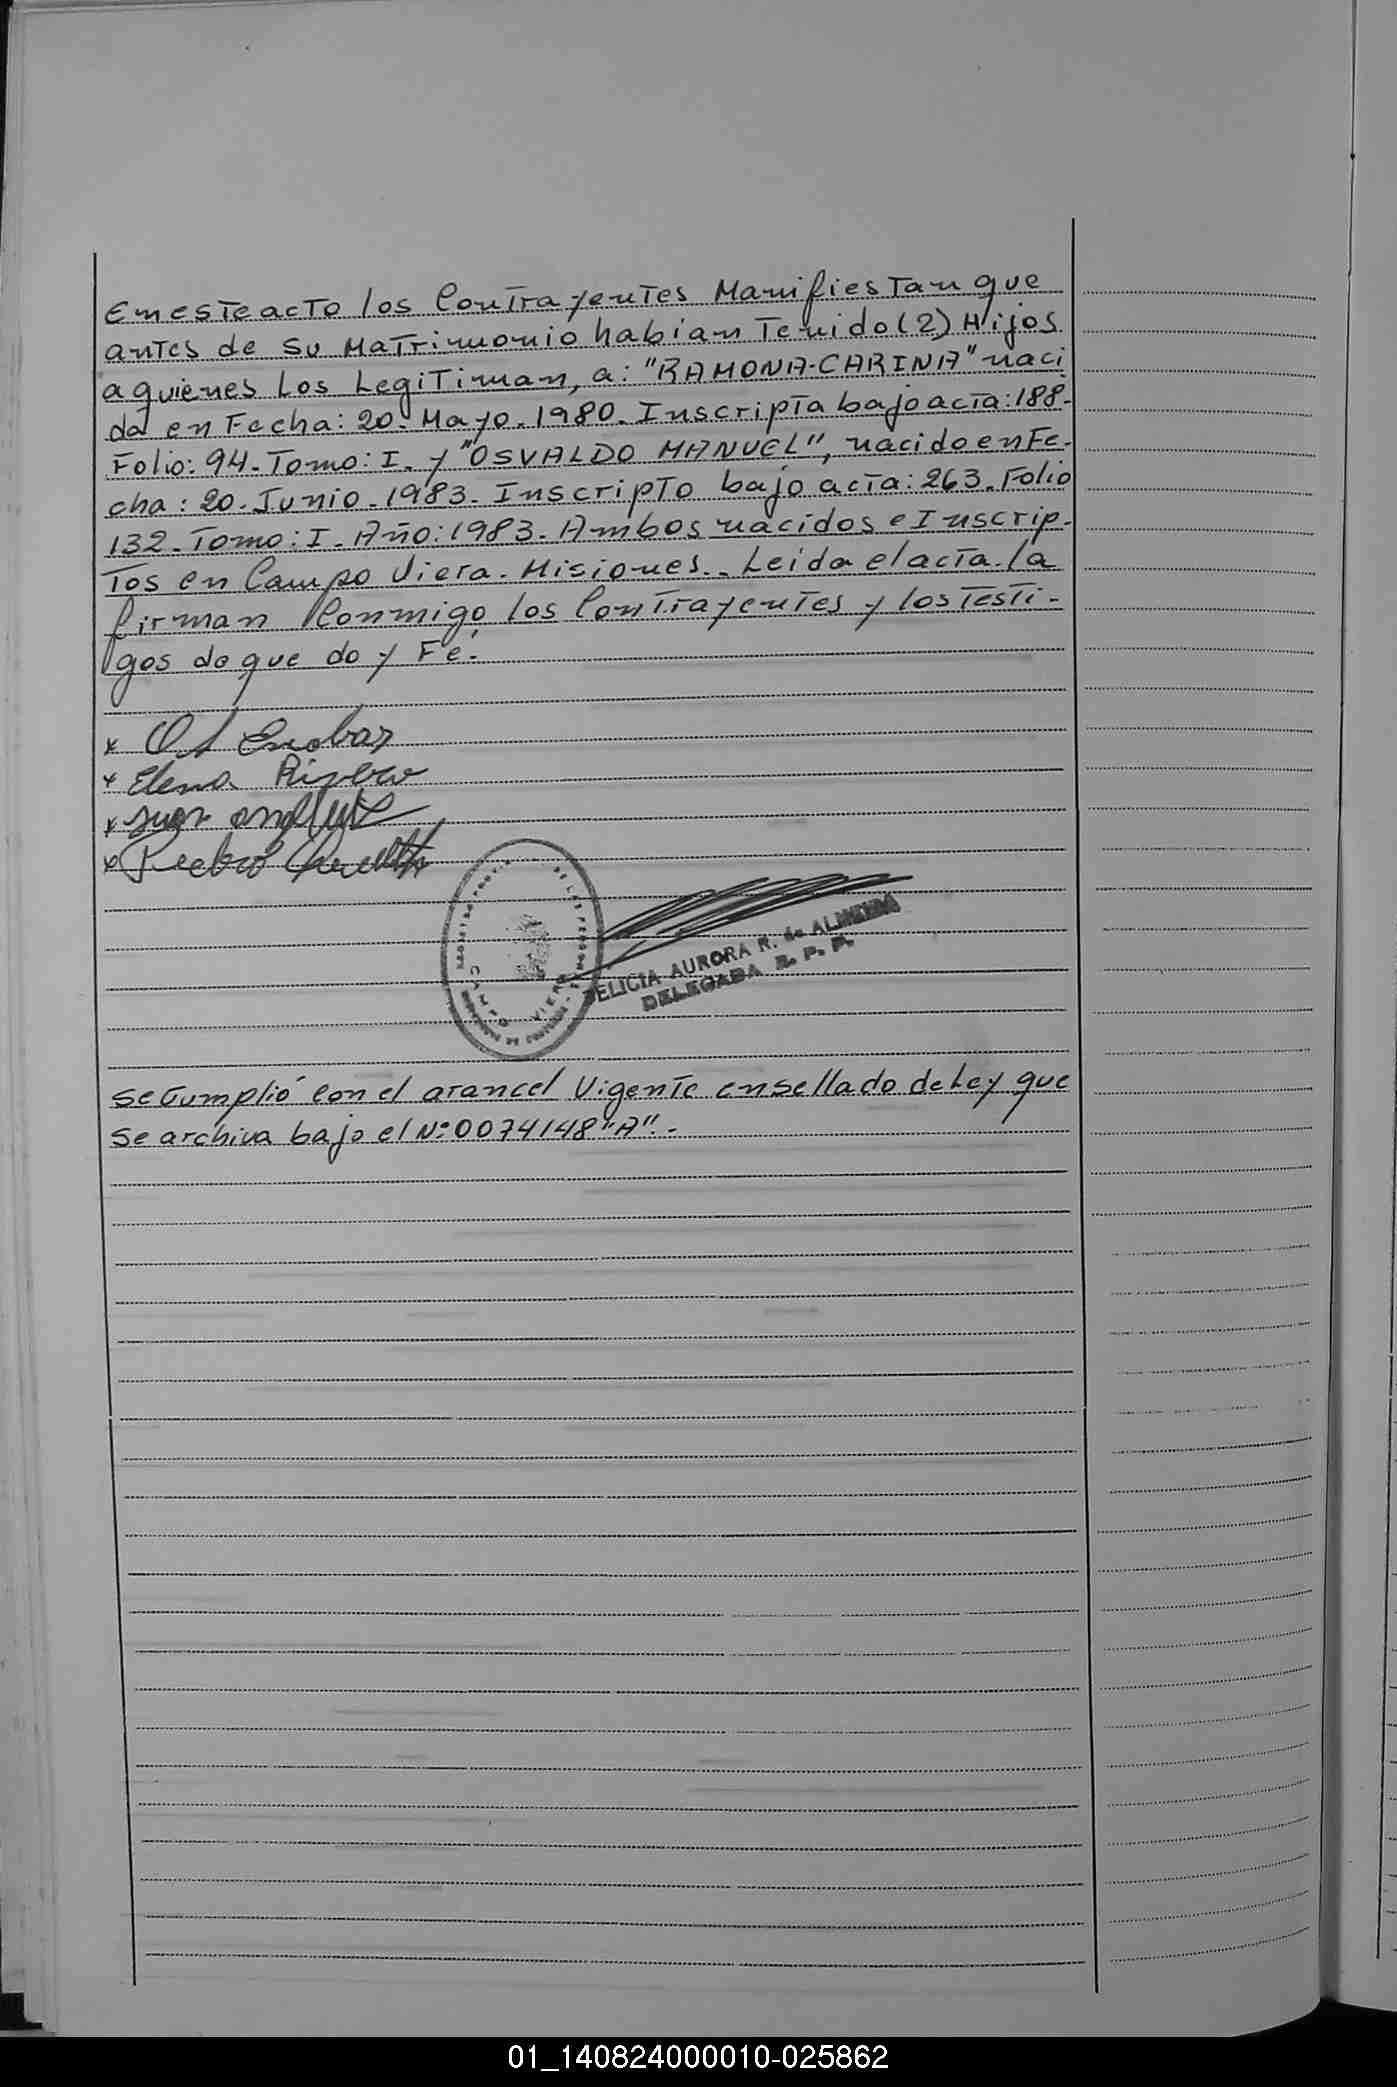 En este acto los Contrayentes Manifiestan que
antes de su Matrimonio habian Tenido (2) Hijos
a quienes Los Legitiman, a: "RAMONA-CARINA" naci
da en Fecha: 20. Mayo. 1980. Inscripta bajo acta: 188-
Folio: 94. Tomo: I. y "OSVALDO MANUEL", nacido en Fe-
cha: 20. Junio. 1983. Inscripto bajo acta: 263. Folio
132. Tomo: I. Año: 1983. Ambos nacidos e Inscrip-
tos en Campo Viera. Misiones.. Leida el acta. la
firman Conmigo los Contrayentes y los Testi-
gos de que doy Fé.
Elena
Juan
Pedro
CAMPO VIERA
DELICIA AURORA R. de ALMEIDA
DELEGADA R. P. P.
Se Cumplió con el arancel Vigente en sellado de Ley que
Se archiva bajo el Nº 0074148 "A". -
01_140824000010-025862